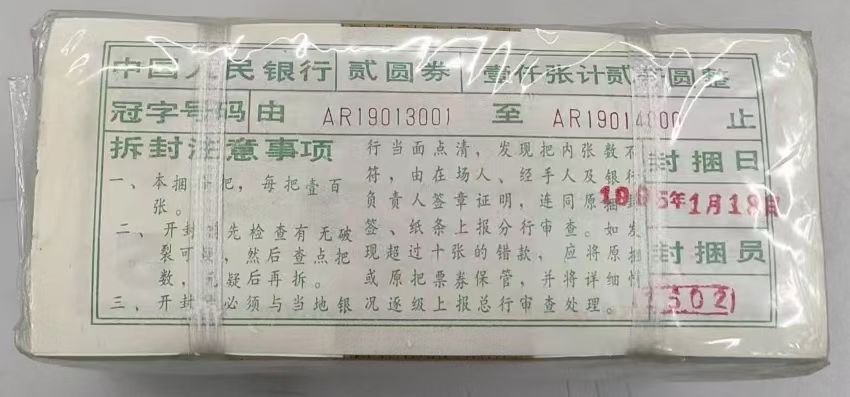 中国人民银行 贰圆券 壹仟张计贰仟圆整
冠字号码 由 AR19013001 至 AR19014000 止
拆封注意事项
一、本捆 把，每把壹百
张。
二、开封 先检查有无破
裂可 ，然后查点把
数，无疑后再拆。
三、开封 必须与当地银
行当面点清，发现把内张数不
符，由在场人、经手人及银行
负责人签章证明，连同原捆封
签、纸条上报分行审查。如发
现超过十张的错款，应将原捆
或原把票券保管，并将详细情
况逐级上报总行审查处理。
封捆日
1995年1月18日
封捆员
2502